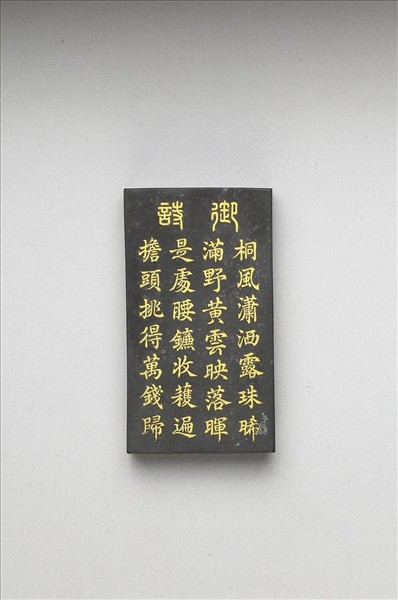 御詩
桐風瀟洒露珠晞
滿野黃雲映落暉
是處腰鐮收穫遍
擔頭挑得萬錢歸